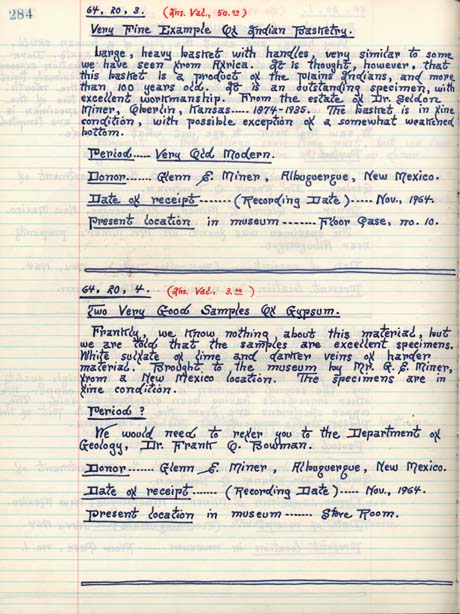 284
64, 20, 3. (Ins. Val., 50.00)
Very Fine Example Of Indian Basketry.
Large, heavy basket with handles, very similar to some
we have seen from Africa. It is thought, however, that
this basket is a product of the plains Indians, and more
than 100 years old. It is an outstanding specimen, with
excellent workmanship. From the estate of Dr. Seldon
Miner, Oberlin, Kansas---- 1874-1935. The basket is in fine
condition, with possible exception of a somewhat weakened
bottom.
Period..... Very Old Modern.
Donor----- Glenn E. Miner, Albuquerque, New Mexico.
Date of receipt------- (Recording Date)----- Nov., 1964.
Present location in museum ------- Floor Case, no. 10.
64, 20, 4. (Ins. Val., 3.00)
Two Very Good Samples Of Gypsum.
Frankly, we know nothing about this material, but
we are told that the samples are excellent specimens.
White sulfate of lime and darker veins of harder
material. Brought to the museum by Mr. G. E. Miner,
from a New Mexico location. The specimens are in
fine condition.
Period ?
We would need to refer you to the Department of
Geology, Dr. Frank O. Bowman.
Donor----- Glenn E. Miner, Albuquerque, New Mexico.
Date of receipt...... (Recording Date)----- Nov., 1964.
Present location in museum ------- Store Room.